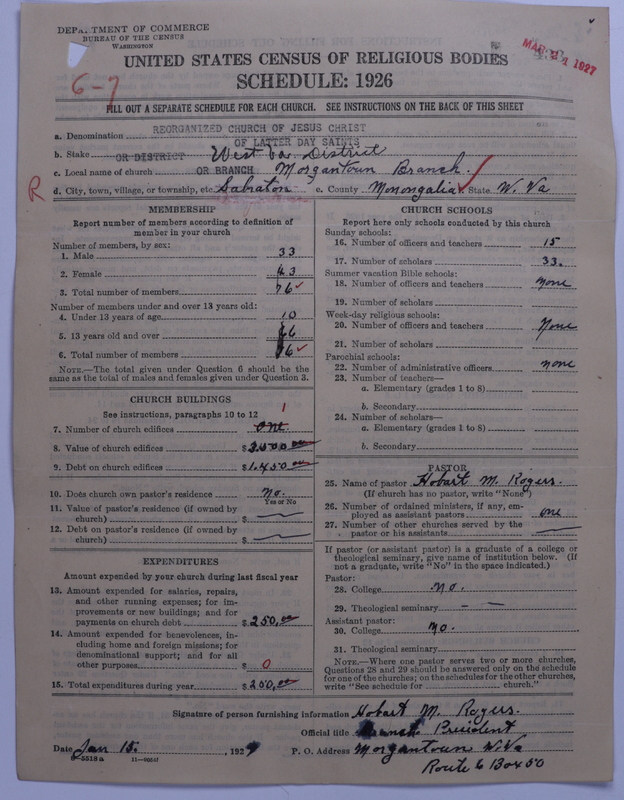 DEPARTMENT OF COMMERCE
BUREAU OF THE CENSUS
WASHINGTON
MAR 21 1927
UNITED STATES CENSUS OF RELIGIOUS BODIES
SCHEDULE: 1926
6-7
FILL OUT A SEPARATE SCHEDULE FOR EACH CHURCH. SEE INSTRUCTIONS ON THE BACK OF THIS SHEET
a. Denomination REORGANIZED CHURCH OF JESUS CHRIST
OF LATTER DAY SAINTS
b. Stake OR DISTRICT West Va District
c. Local name of church OR BRANCH Morgantown Branch.
R d. City, town, village, or township, etc. Sabraton e. County Monongalia State W. Va
MEMBERSHIP
Report number of members according to definition of
member in your church
Number of members, by sex:
1. Male 33
2. Female 43
3. Total number of members 76
Number of members under and over 13 years old:
4. Under 13 years of age 10
5. 13 years old and over 66
6. Total number of members 76
NOTE.—The total given under Question 6 should be
the same as the total of males and females given under Question 3.
CHURCH BUILDINGS
See instructions, paragraphs 10 to 12
1
7. Number of church edifices one.
8. Value of church edifices $3.500.00
9. Debt on church edifices $1.450.00
10. Does church own pastor's residence no.
Yes or No
11. Value of pastor's residence (if owned by
church) $
12. Debt on pastor's residence (if owned by
church) $
EXPENDITURES
Amount expended by your church during last fiscal year
13. Amount expended for salaries, repairs,
and other running expenses; for im-
provements or new buildings; and for
payments on church debt $250.00
14. Amount expended for benevolences, in-
cluding home and foreign missions; for
denominational support; and for all
other purposes $ 0
15. Total expenditures during year $250.00
CHURCH SCHOOLS
Report here only schools conducted by this church
Sunday schools:
16. Number of officers and teachers 15
17. Number of scholars 33.
Summer vacation Bible schools:
18. Number of officers and teachers none
19. Number of scholars
Week-day religious schools:
20. Number of officers and teachers None
21. Number of scholars
Parochial schools:
22. Number of administrative officers none
23. Number of teachers—
a. Elementary (grades 1 to 8)
b. Secondary
24. Number of scholars—
a. Elementary (grades 1 to 8)
b. Secondary
PASTOR
25. Name of pastor Hobart M. Rogers.
(If church has no pastor, write "None")
26. Number of ordained ministers, if any, em-
ployed as assistant pastors one
27. Number of other churches served by the
pastor or his assistants
If pastor (or assistant pastor) is a graduate of a college or
theological seminary, give name of institution below. (If
not a graduate, write "No" in the space indicated.)
Pastor:
28. College no.
29. Theological seminary
Assistant pastor:
30. College no.
31. Theological seminary
NOTE.—Where one pastor serves two or more churches,
Questions 28 and 29 should be answered only on the schedule
for one of the churches; on the schedules for the other churches,
write "See schedule for church."
Signature of person furnishing information Hobart M. Rogers.
Official title Branch President
Date Jan 15. , 1927 P. O. Address Morgantown W. Va
8-5518a 11-9034f Route 6 Box 50